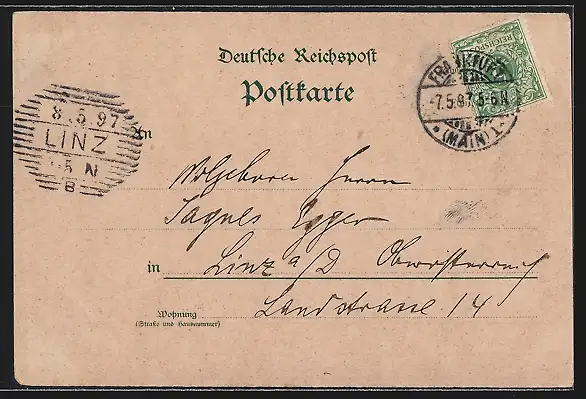 Deutsche Reichspost
Postkarte
REICHSPOST
FRANKFURT
7.5.97. 5-6N
* (MAIN) 1.
8.5.97
LINZ
5 N
B
An
Wolgeboren Herrn
Jaques Egger
in Linz a/D Oberösterreich
Landstrasse 14
Wohnung
(Straße und Hausnummer)